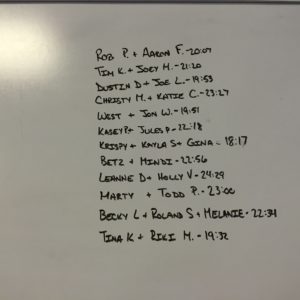 Rob P. + Aaron F. - 20:07
Tim K. + Joey M. - 21:20
Dustin D + Joe L. - 19:53
Christy M. + Katie C. - 23:27
West + Jon W. - 19:51
Kasey P. + Jules P - 22:18
Krispy + Kayla S + Gina - 18:17
Betz + Mindi - 22:56
Leanne D + Holly V - 24:29
Marty + Todd P. - 23:00
Becky L + Roland S + Melanie - 22:34
Tina K + Riki M. - 19:32